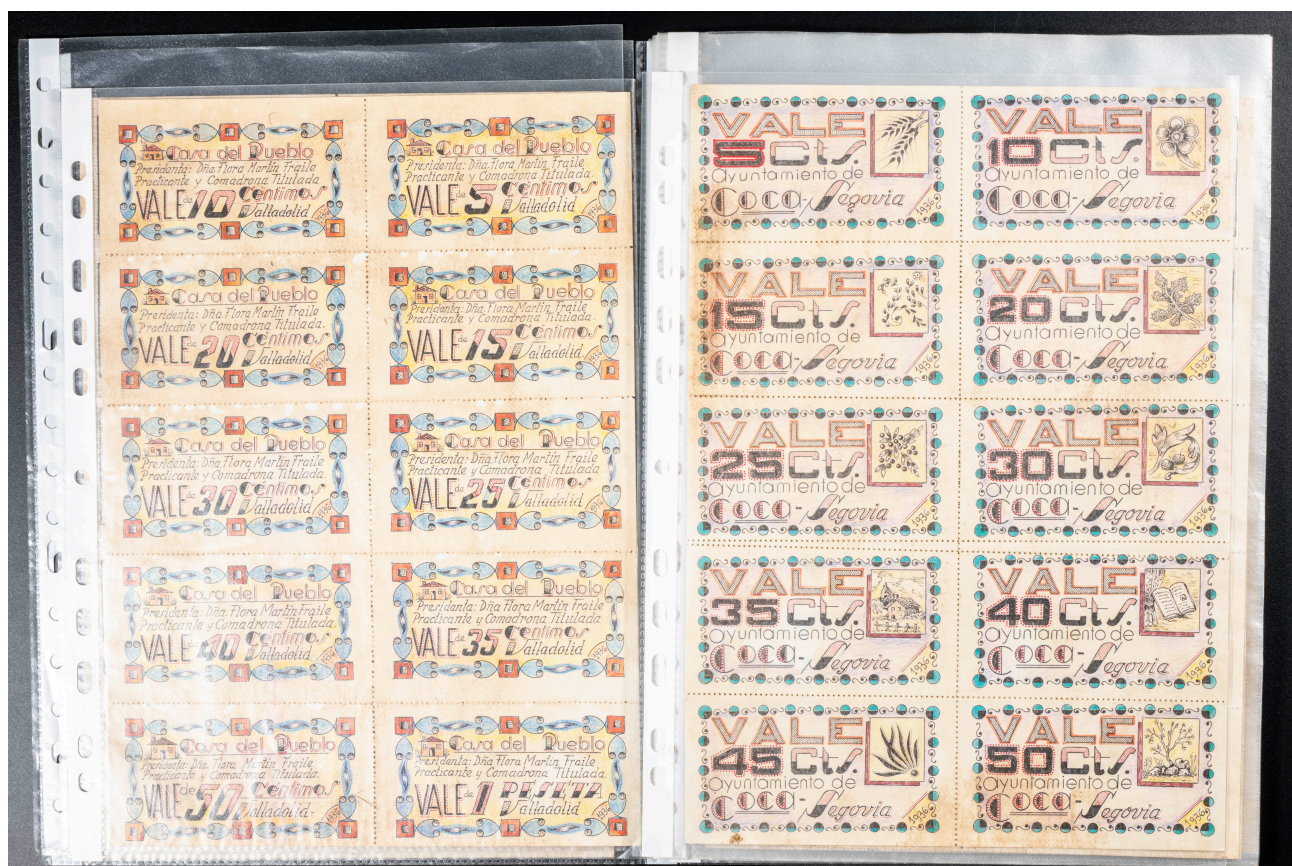 Casa del Pueblo
Presidenta: Dña Flora Martin Fraile
Practicante y Comadrona Titulada.
VALE de 10 Centimos
Valladolid 1936
Casa del Pueblo
Presidenta: Dña Flora Martin Fraile
Practicante y Comadrona Titulada.
VALE de 5 Centimos
Valladolid 1936
Casa del Pueblo
Presidenta: Dña Flora Martin Fraile
Practicante y Comadrona Titulada.
VALE de 20 Centimos
Valladolid 1936
Casa del Pueblo
Presidenta: Dña Flora Martin Fraile
Practicante y Comadrona Titulada.
VALE de 15 Centimos
Valladolid 1936
Casa del Pueblo
Presidenta: Dña Flora Martin Fraile
Practicante y Comadrona Titulada.
VALE de 30 Centimos
Valladolid 1936
Casa del Pueblo
Presidenta: Dña Flora Martin Fraile
Practicante y Comadrona Titulada.
VALE de 25 Centimos
Valladolid 1936
Casa del Pueblo
Presidenta: Dña Flora Martin Fraile
Practicante y Comadrona Titulada.
VALE de 40 Centimos
Valladolid 1936
Casa del Pueblo
Presidenta: Dña Flora Martin Fraile
Practicante y Comadrona Titulada.
VALE de 35 Centimos
Valladolid 1936
Casa del Pueblo
Presidenta: Dña Flora Martin Fraile
Practicante y Comadrona Titulada.
VALE de 50 Centimos
Valladolid- 1936
Casa del Pueblo
Presidenta: Dña Flora Martin Fraile
Practicante y Comadrona Titulada.
VALE de 1 PESETA
Valladolid 1936
VALE
5 Cts.
Ayuntamiento de
Coca-Segovia
1936
VALE
10 Cts.
Ayuntamiento de
Coca-Segovia
1936
VALE
15 Cts.
Ayuntamiento de
Coca-Segovia
1936
VALE
20 Cts.
Ayuntamiento de
Coca-Segovia
1936
VALE
25 Cts.
Ayuntamiento de
Coca-Segovia
1936
VALE
30 Cts.
Ayuntamiento de
Coca-Segovia
1936
VALE
35 Cts.
Ayuntamiento de
Coca-Segovia
1936
VALE
40 Cts.
Ayuntamiento de
Coca-Segovia
1936
VALE
45 Cts.
Ayuntamiento de
Coca-Segovia
1936
VALE
50 Cts.
Ayuntamiento de
Coca-Segovia
1936